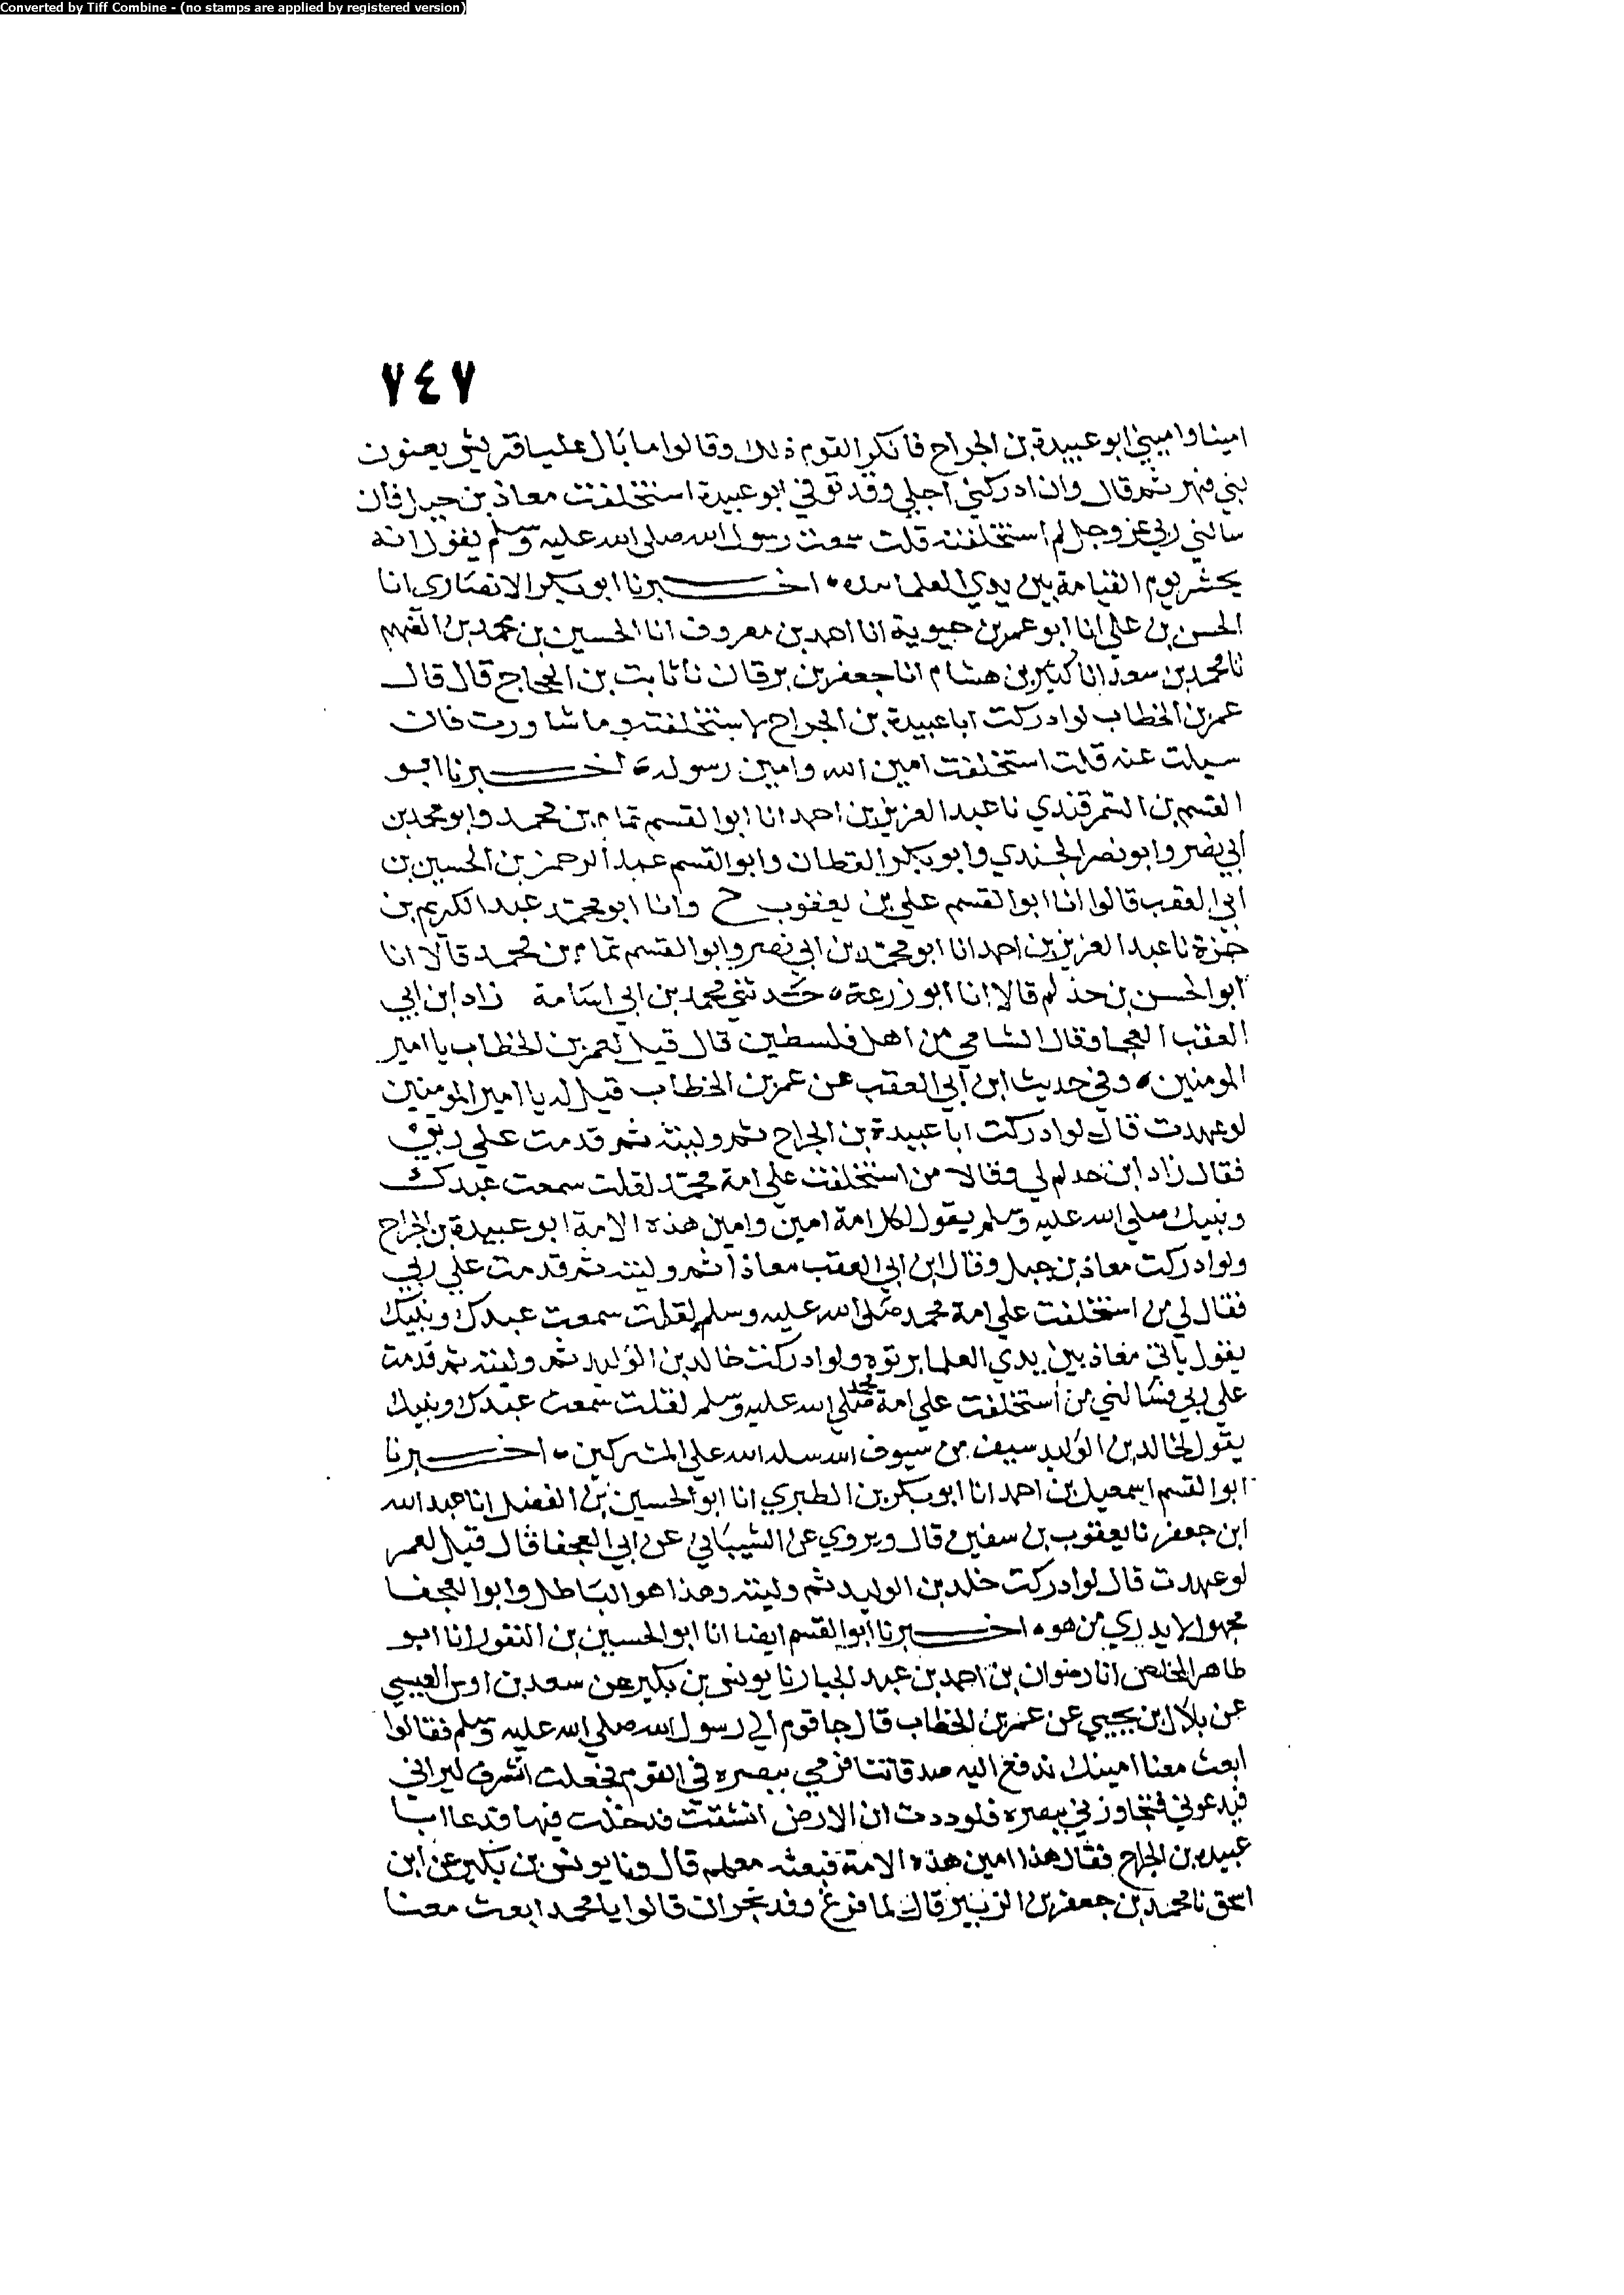 Converted by Tiff Combine - (no stamps are applied by registered version)
٧٤٧
امينا واميني ابو عبيدة بن الجراح فانكر القوم ذلك وقالوا ما بال عليا قريش يعنون
بني فهر ثم قال وان ادركني اجلي وقد توفي ابو عبيدة استخلفت معاذ بن جبل فان
سالني ربي عز وجل لم استخلفته قلت سمعت رسول الله صلى الله عليه وسلم يقول انه
يحشر يوم القيامة بين يدي العلما اخبرنا ابو بكر الانصاري انا
الحسن بن علي انا ابو عمر بن حيوية انا احمد بن معروف انا الحسين بن محمد بن الفهم
نا محمد بن سعد انا كثير بن هشام انا جعفر بن برقان نا ثابت بن الحجاج قال قال
عمر بن الخطاب لو ادركت ابا عبيدة بن الجراح لاستخلفته وما شاورت فان
سيلت عنه قلت استخلفت امين الله وامين رسوله اخبرنا ابو
القسم بن السمرقندي نا عبد العزيز بن احمد انا ابو القسم تمام بن محمد وابو محمد بن
ابي نصر وابو نصر الجندي وابو بكر القطان وابو القسم عبد الرحمن بن الحسين بن
ابي العقب قالوا انا ابو القسم علي بن يعقوب ح وانا ابو محمد عبد الكريم بن
حمزة نا عبد العزيز بن احمد انا ابو محمد بن ابي نصر وابو القسم تمام بن محمد قالا انا
ابو الحسن بن حذلم قالا انا ابو زرعة حدثني محمد بن ابي اسامة زاد ابن ابي
العقب العجفا وقال الشامي من اهل فلسطين قال قيل لعمر بن الخطاب يا امير
المومنين وفي حديث ابن ابي العقب عن عمر بن الخطاب قيل له يا امير المومنين
لو عهدت قال لو ادركت ابا عبيدة بن الجراح ثم وليته ثم قدمت علي ربي
فقال زاد ابن حذلم لي وقالا من استخلفت علي امة محمد لقلت سمعت عبدك
ونبيك صلي الله عليه وسلم يقول لكل امة امين وامين هذه الامة ابو عبيدة بن الجراح
ولو ادركت معاذ بن جبل وقال ابن ابي العقب معاذا ثم وليته ثم قدمت علي ربي
فقال لي من استخلفت علي امة محمد صلى الله عليه وسلم لقلت سمعت عبدك ونبيك
يقول ياتي معاذ بين يدي العلما برتوه ولو ادركت خالد بن الوليد ثم وليته ثم قدمت
علي ربي فسالني من استخلفت علي امة محمد صلي الله عليه وسلم لقلت سمعت عبدك ونبيك
يقول لخالد بن الوليد سيف من سيوف الله سله الله علي المشركين اخبرنا
ابو القسم اسمعيل بن احمد انا ابو بكر بن الطبري انا ابو الحسين بن الفضل انا عبد الله
ابن جعفر نا يعقوب بن سفين قال ويروي عن الشيباني عن ابي العجفا قال قيل لعمر
لو عهدت قال لو ادركت خلد بن الوليد ثم وليته وهذا هو الباطل وابو العجفا
مجهول لا يدري من هو اخبرنا ابو القسم ايضا انا ابو الحسين بن النقور انا ابو
طاهر المخلص انا رضوان بن احمد بن عبد الجبار نا يونس بن بكير عن سعد بن اوس العبسي
عن بلال بن يحيي عن عمر بن الخطاب قال جا قوم الي رسول الله صلي الله عليه وسلم فقالوا
ابعث معنا امينك ندفع اليه صدقاتنا فرمي ببصره في القوم فجعلت اتشرف ليراني
فيدعوني فتجاوزني ببصره فلوددت ان الارض انشقت فدخلت فيها فدعا ابا
عبيده بن الجراح فقال هذا امين هذه الامة فبعثه معهم قال ونا يونس بن بكير عن ابن
اسحق نا محمد بن جعفر بن الزبير قال لما فرغ وفد نجران قالوا يا محمد ابعث معنا